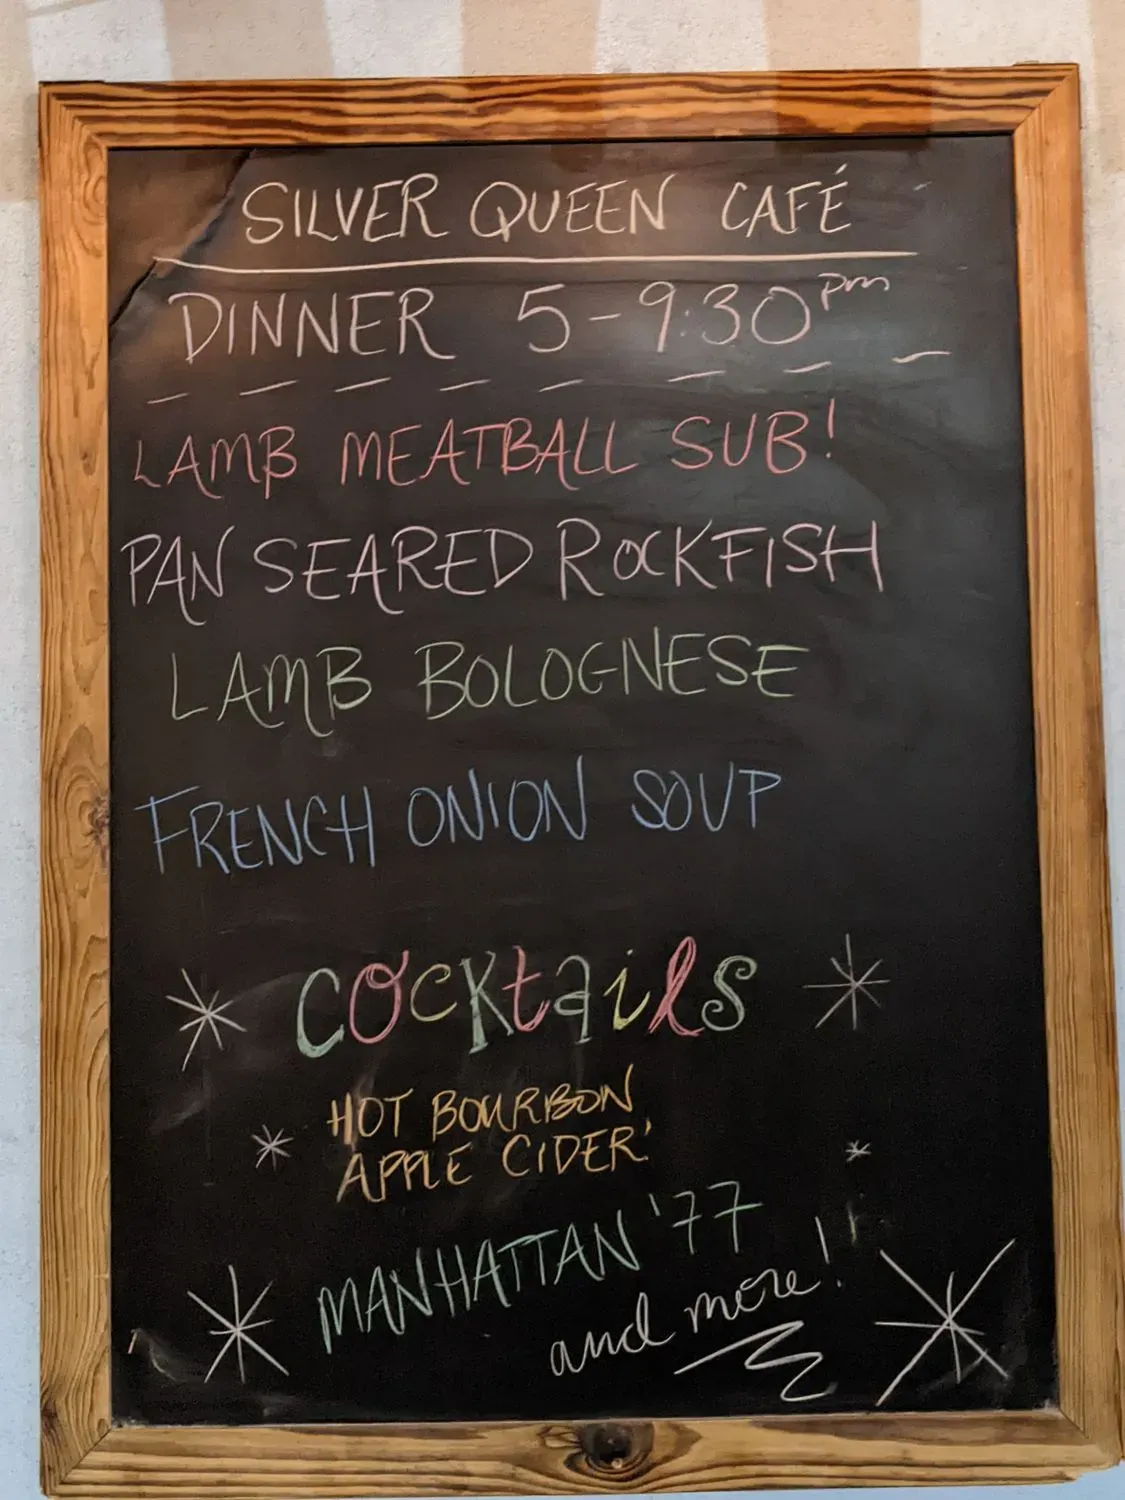 SILVER QUEEN CAFÉ
DINNER 5-9:30pm
LAMB MEATBALL SUB!
PAN SEARED ROCKFISH
LAMB BOLOGNESE
FRENCH ONION SOUP
Cocktails
HOT BOURBON
APPLE CIDER!
MANHATTAN '77
and more!